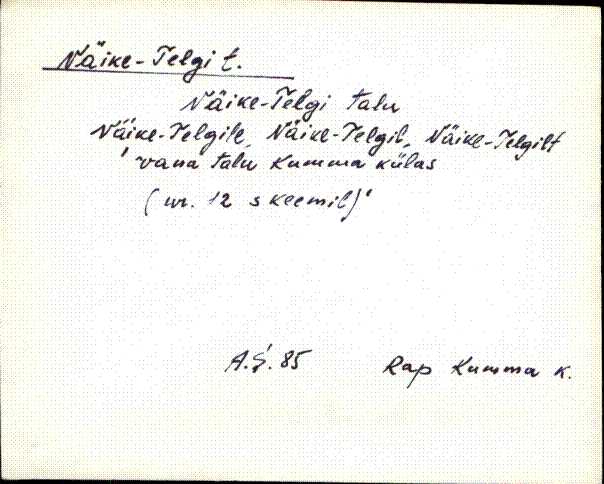 Näike-Telgi t.
Näike-Telgi talu
Näike-Telgile, Näike-Telgil, Näike-Telgilt
'vana talu Kumma külas
(nr. 12 skeemil)'
A.Š. 85 Rap Kumma k.